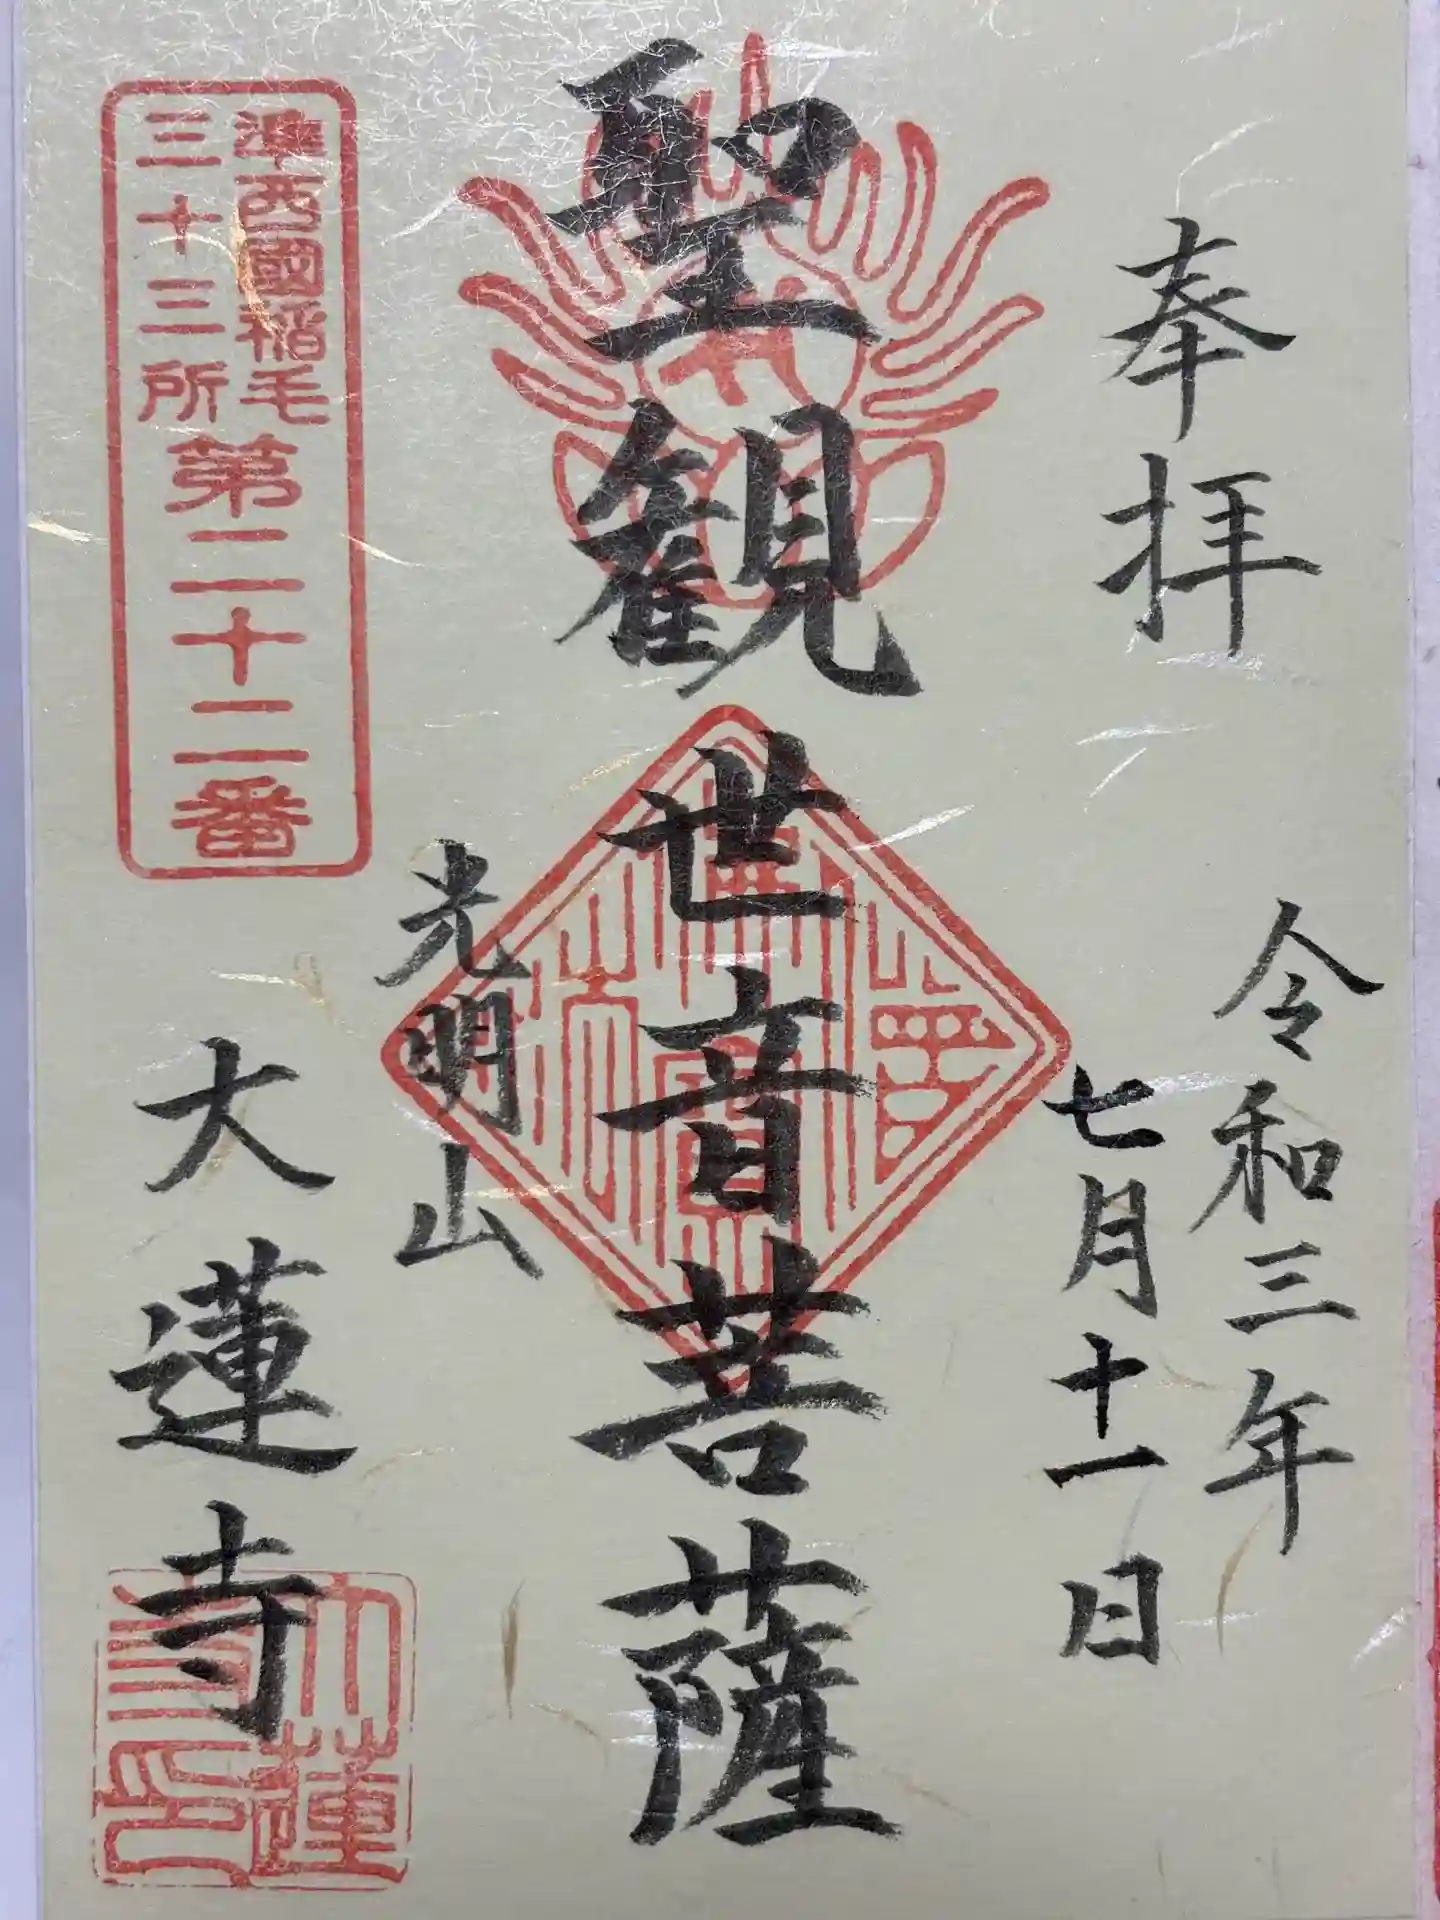 奉拝
令和三年
七月十一日
聖観世音菩薩
光明山
大蓮寺
準西國稲毛
三十三所
第二十二番
大蓮
寺印